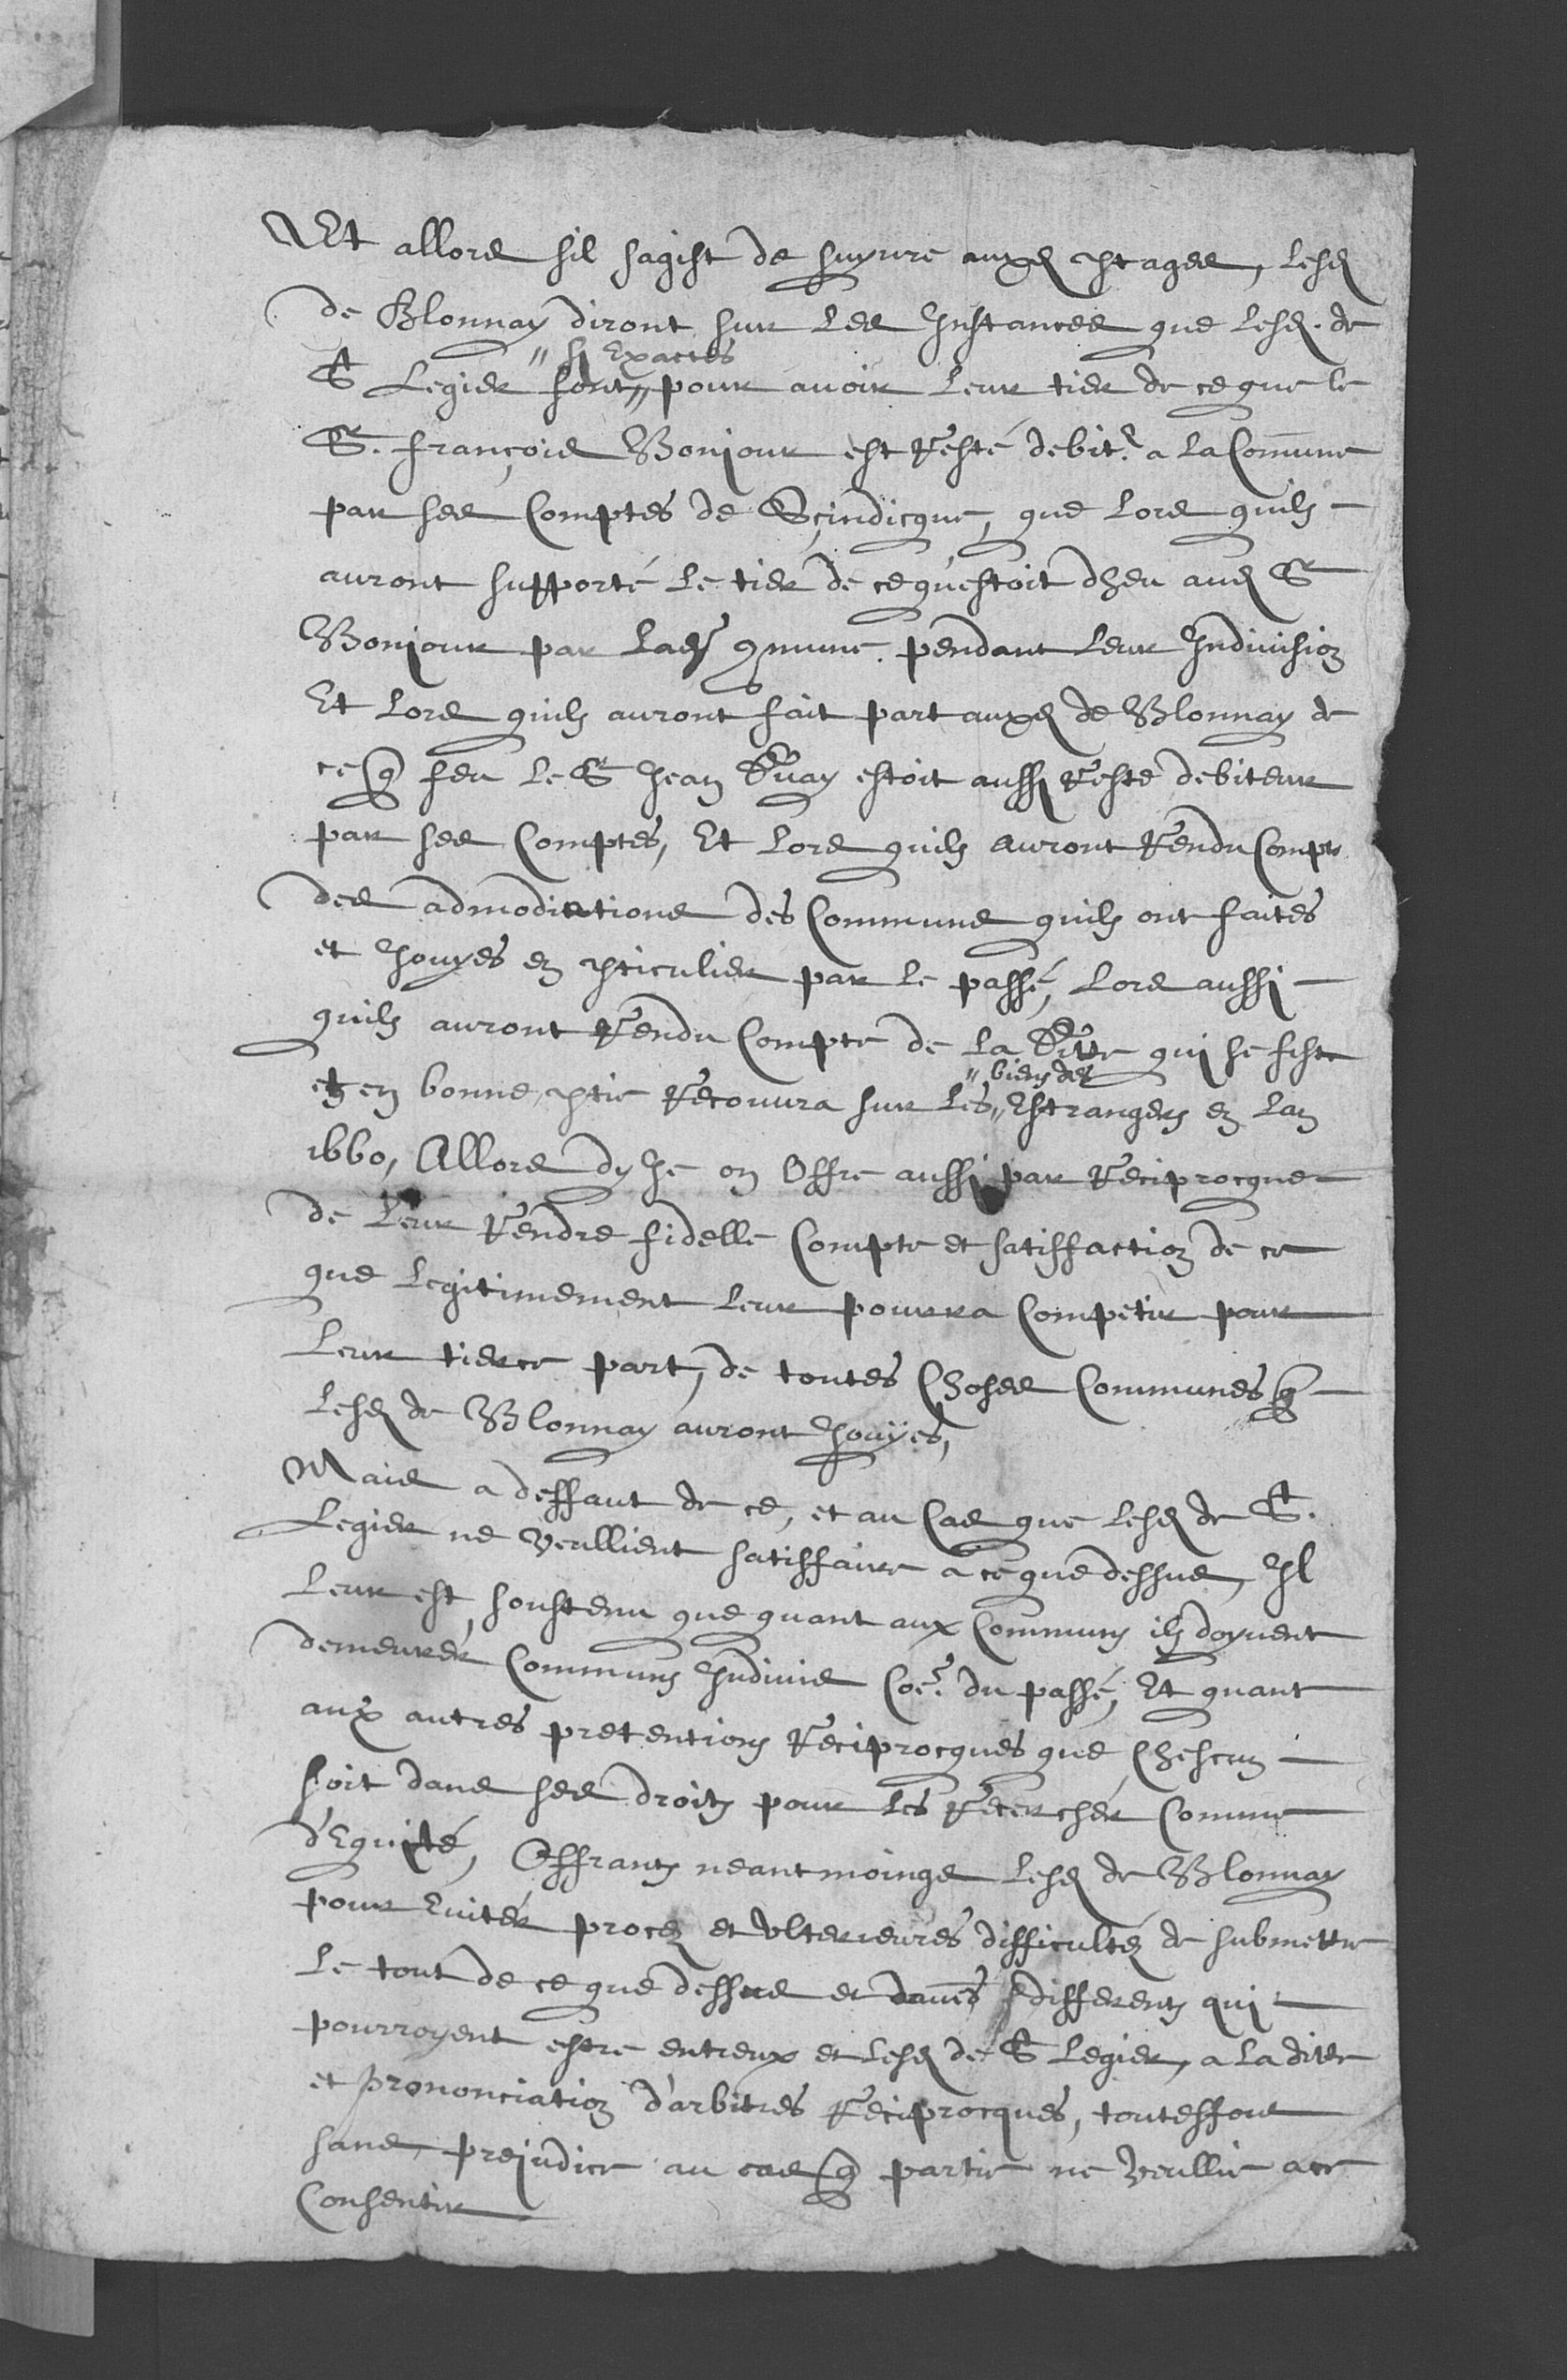 Et allors sil sagist de suyvre auxd ptages, lesd
de Blonnay diront sur les Instances que lesd. de
" si Exactes
St Legier font " pour avoir leur tier de ce que le
Sr. françois Bonjour est Resté debitr. a la Comune
par ses Comptes de Scindicque, que lors quils
auront supporté le tier de ce qu'estoit dheu aud Sr
Bonjour par lade 9mune. pendant leur Indivision
Et lors quils auront fait part auxd de Blonnay de
ce q feu le Sr Jean Duay estoit aussi Resté debiteur
par ses Comptes, Et lors quils auront Rendu Compte
des admodiations des Communs quils ont faites
et Jouyes en pticulier par le passé, lors aussi
quils auront Rendu Compte de la qui se fist
" biens des
et en bonne ptie Recouvra sur les " Estrangers en lan
1660, Allors dy Je on Offre aussi par Reciprocque
de leur Rendre fidelle Compte et satisfaction de ce
que legitimement leur pourra Competir pour
leur tierce part, de toutes Choses Communes q
lesd de Blonnay auront Jouyes,
Mais a deffaut de ce, et au Cas que lesd de St.
Legier ne veullient satisfaire a ce que dessus, Il
leur est soustenu que quant aux Communs ils doyvent
demeurér Communs Indivis Coe. du passé, Et quant
aux autres pretentions Reciprocques que Chescun
soit dans ses droits pour les Recerchér Comme
d'Equité, Offrants neantmoings lesd de Blonnay
pour Evitér procez et Ulterieures difficultéz de submettre
le tout de ce que dessus et differents qui
pourroyent estre entreux et lesd de St Legier, a la ditte
et prononciation d'arbitres Reciprocques, touteffois
sans prejudice au cas q partie ne veullie a ce
Consentir